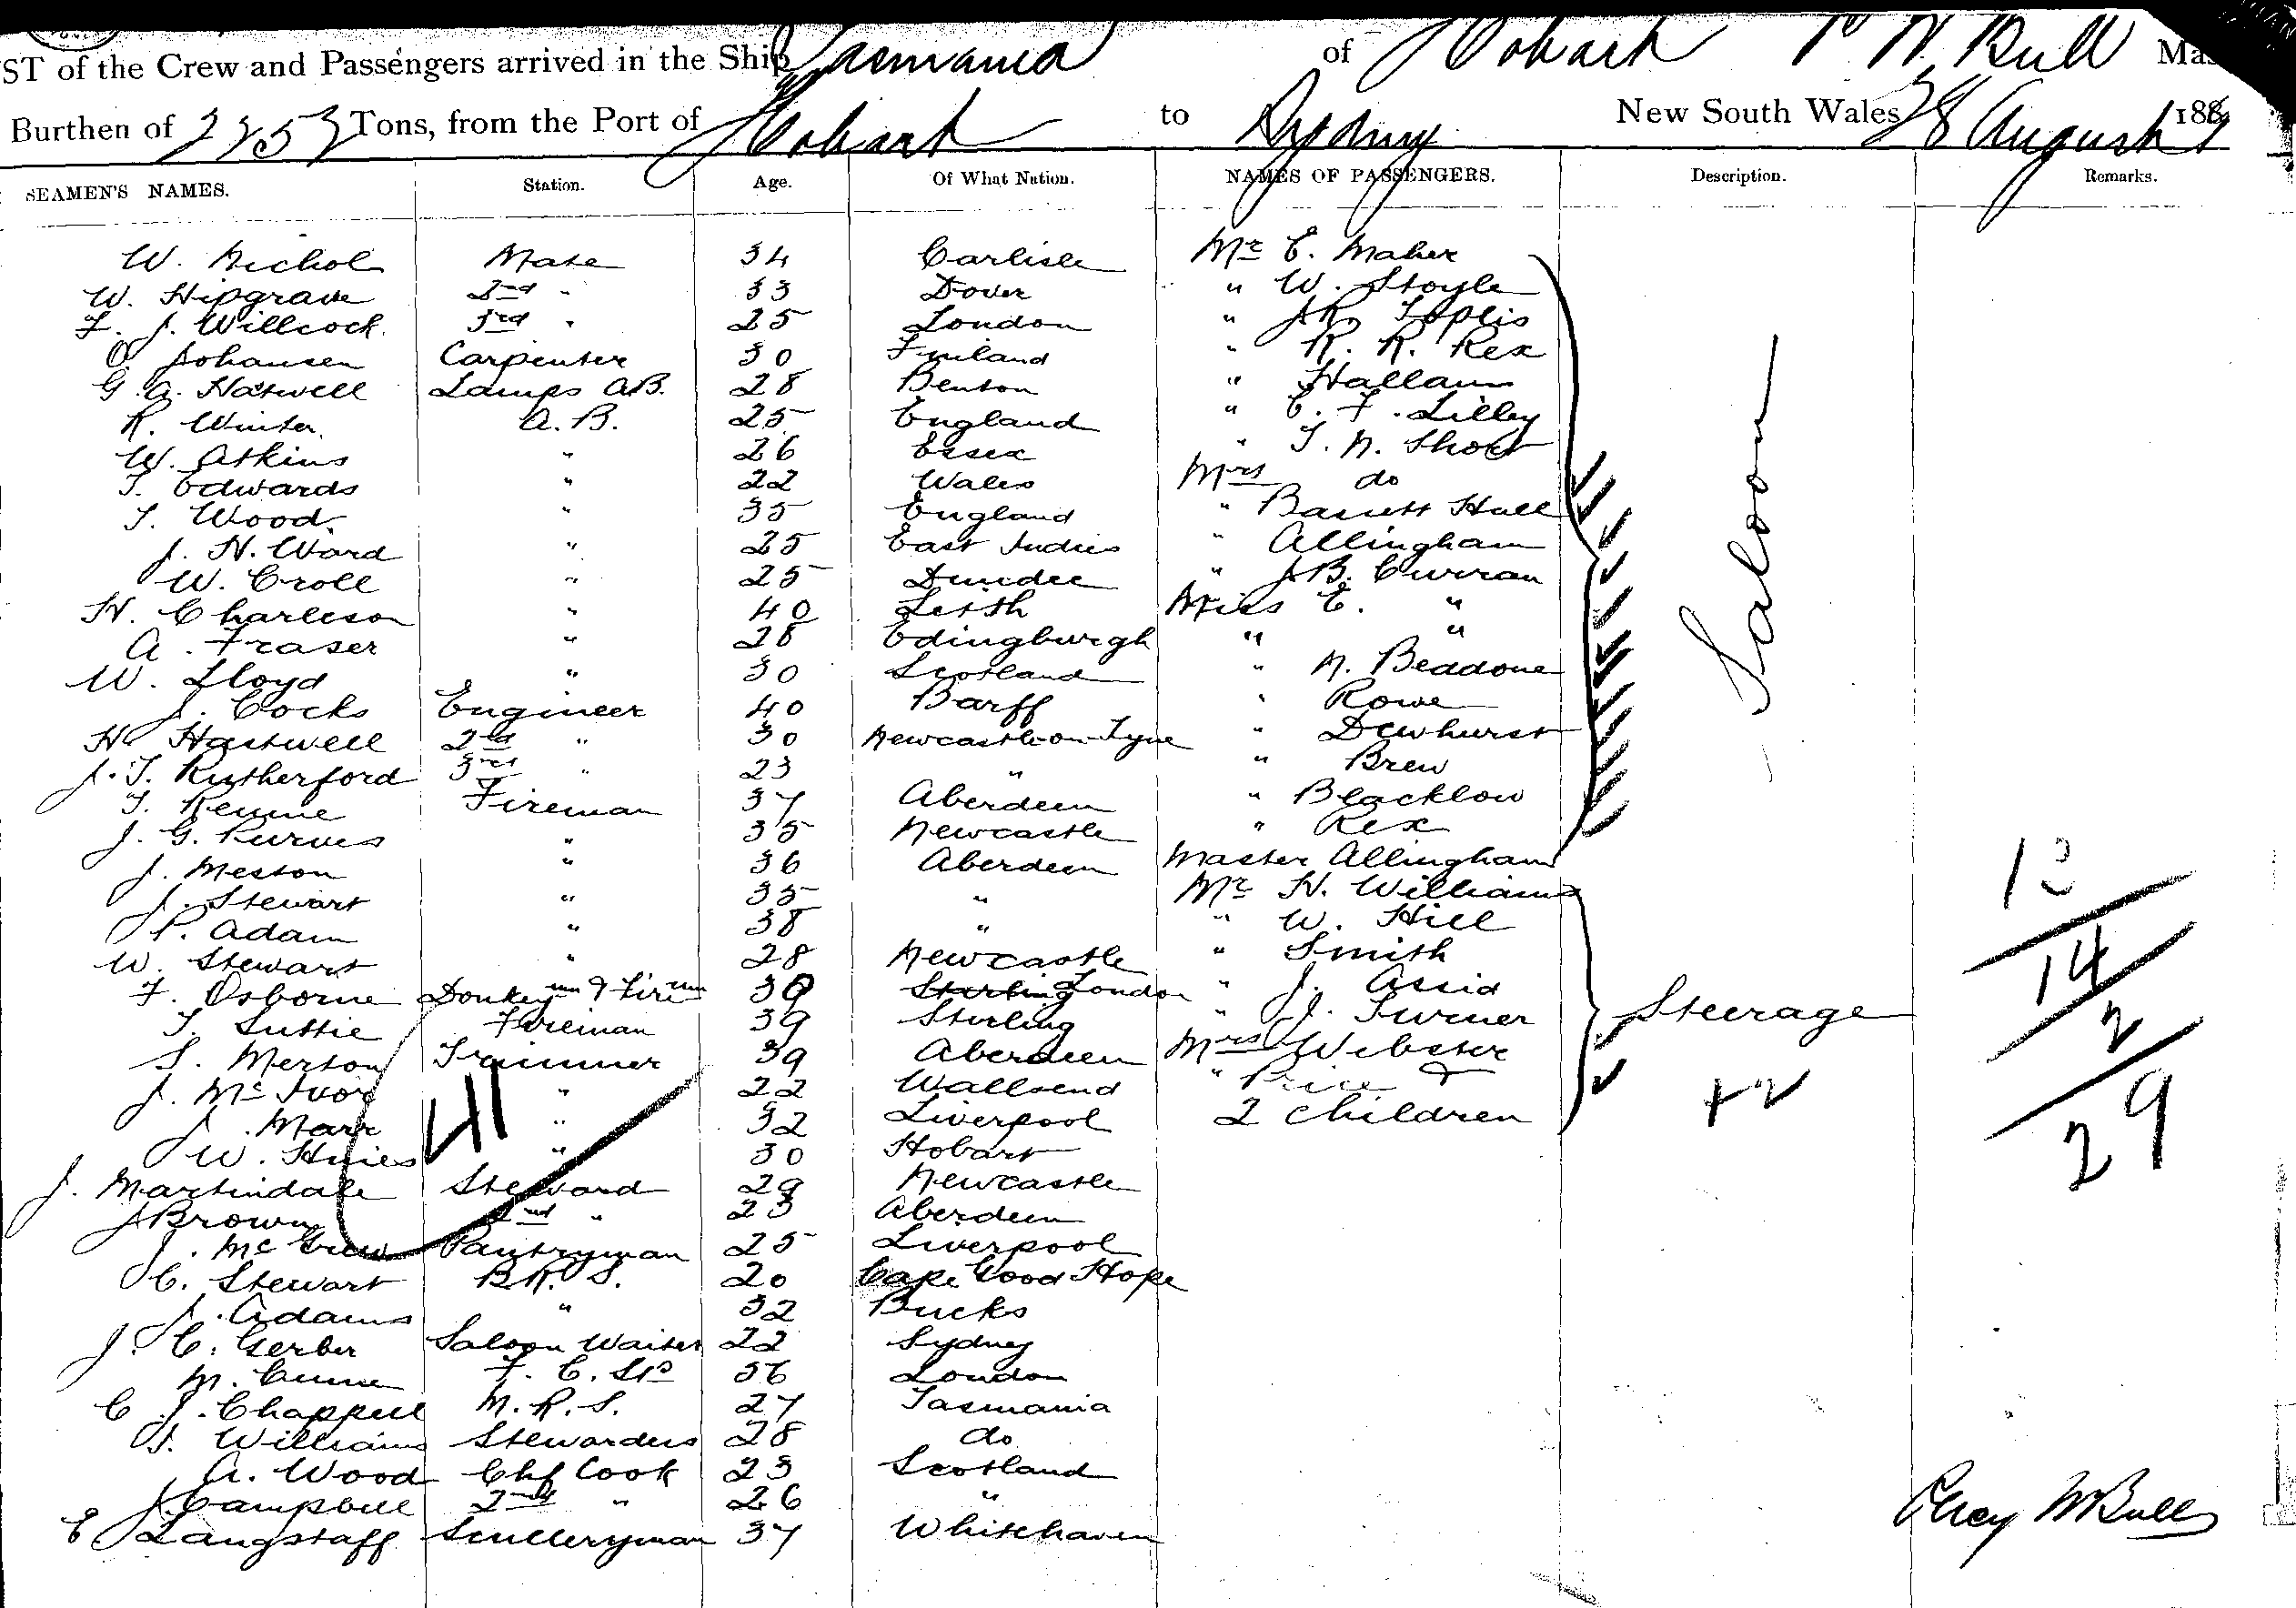 ST of the Crew and Passengers arrived in the Ship Tasmania of Hobart W Bull Mas
Burthen of 2252 Tons, from the Port of Hobart to Sydney New South Wales 28 August 188
SEAMEN'S NAMES. Station. Age. Of What Nation. NAMES OF PASSENGERS. Description. Remarks.
W. Nichol Mate 34 Carlisle Mr E. Maher
W. Hipgrave 2nd " 33 Dover " W. Stoyle
F. J. Willcock. 3rd " 25 London " Toplis
O. Johansen Carpenter 30 Finland " R. R. Rex
G. A. Hatwell Lamps A.B. 28 Benton " Hallam
R. Winter A.B. 25 England " C. F. Lilley
W. Atkins " 26 Essex " T. N. Short
T. Edwards " 22 Wales Mrs do
T. Wood " 35 England " Barrett Hall
J. H. Ward " 25 East Indies " Allingham
W. Croll " 25 Dundee " J B. Curran
H. Charleson " 40 Leith Miss E. "
A. Fraser " 28 Edingburgh " "
W. Lloyd " 30 Scotland " N. Beadone
J. Cocks Engineer 40 Barff " Rowe
H. Hastwell 2nd " 30 Newcastle-on-Tyne " Dewhurst
J. T. Rutherford 3rd " 23 " " Brew
T. Rennie Fireman 37 Aberdeen " Blacklow
J. G. Purves " 35 Newcastle " Rex
J. Meston " 36 Aberdeen Master Allingham
Saloon
J. Stewart " 35 " Mr H. Williams
P. Adam " 38 " " W. Hill
W. Stewart " 28 Newcastle " Smith
F. Osborne Donkeymn & Firemn 39 Sterling London " J. Assid
T. Suttie Fireman 39 Sterling " J. Turner Steerage
S. Merson Trimmer 39 Aberdeen Mrs Webster
J. McIvor " 22 Wallsend " Price &
J. Marr " 32 Liverpool 2 Children + 2
W. Hines " 30 Hobart
J. Martindale Steward 29 Newcastle
J Brown 2nd " 23 Aberdeen
J. McGrew Pantryman 25 Liverpool
C. Stewart B.R. S. 20 Cape Good Hope
J. Adams " 32 Bucks
J. C. Gerber Saloon Waiter 22 Sydney
M. Cunne F. C. Std 56 London
C. J. Chappell M. R. S. 27 Tasmania
J. Williams Stewardess 28 do
A. Wood Chf Cook 23 Scotland
J. Campbell 2nd " 26 "
E Langstaff Sculleryman 37 Whitehaven
41
13
14
2
29